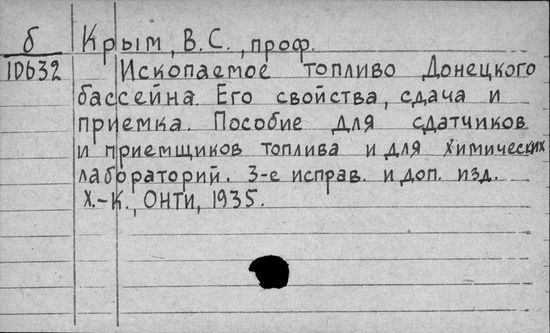 б Крым, В.С., проф.
1D632 Ископаемое топливо Донецкого
бассейна. Его свойства, сдача и
приемка. Пособие для сдатчиков
и приемщиков топлива и для химических
лабораторий. 3-е исправ. и доп. изд.
Х.-К., ОНТИ, 1935.